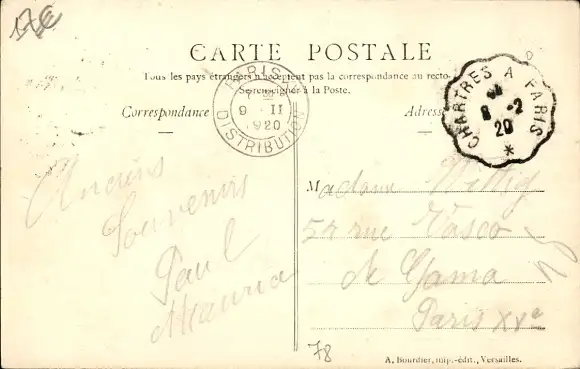 CARTE POSTALE
Tous les pays étrangers n'acceptent pas la correspondance au recto.
Se renseigner à la Poste.
Correspondance
Adresse
PARIS
9 II
1920
DISTRIBUTION
CHARTRES A PARIS
8-2
20
*
Souvenirs
Paul
Madame
54 rue Vasco
de Gama
Paris XVe
78
A. Bourdier, imp.-édit., Versailles.